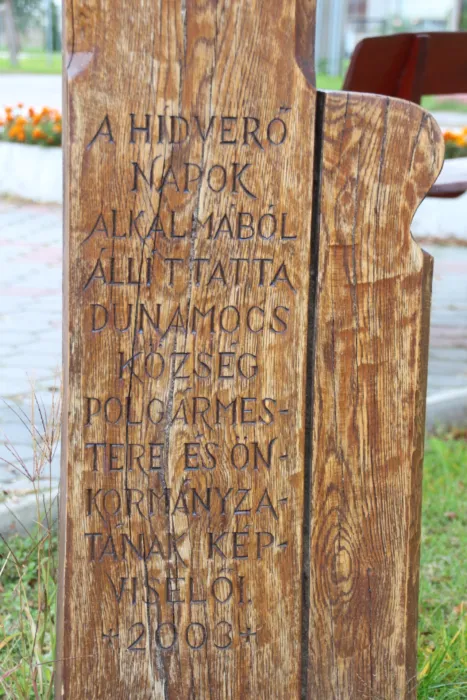 A HÍDVERŐ
NAPOK
ALKALMÁBÓL
ÁLLÍTTATTA
DUNAMOCS
KÖZSÉG
POLGÁRMES-
TERE ÉS ÖN-
KORMÁNYZA-
TÁNAK KÉP-
VISELŐI.
+2003+